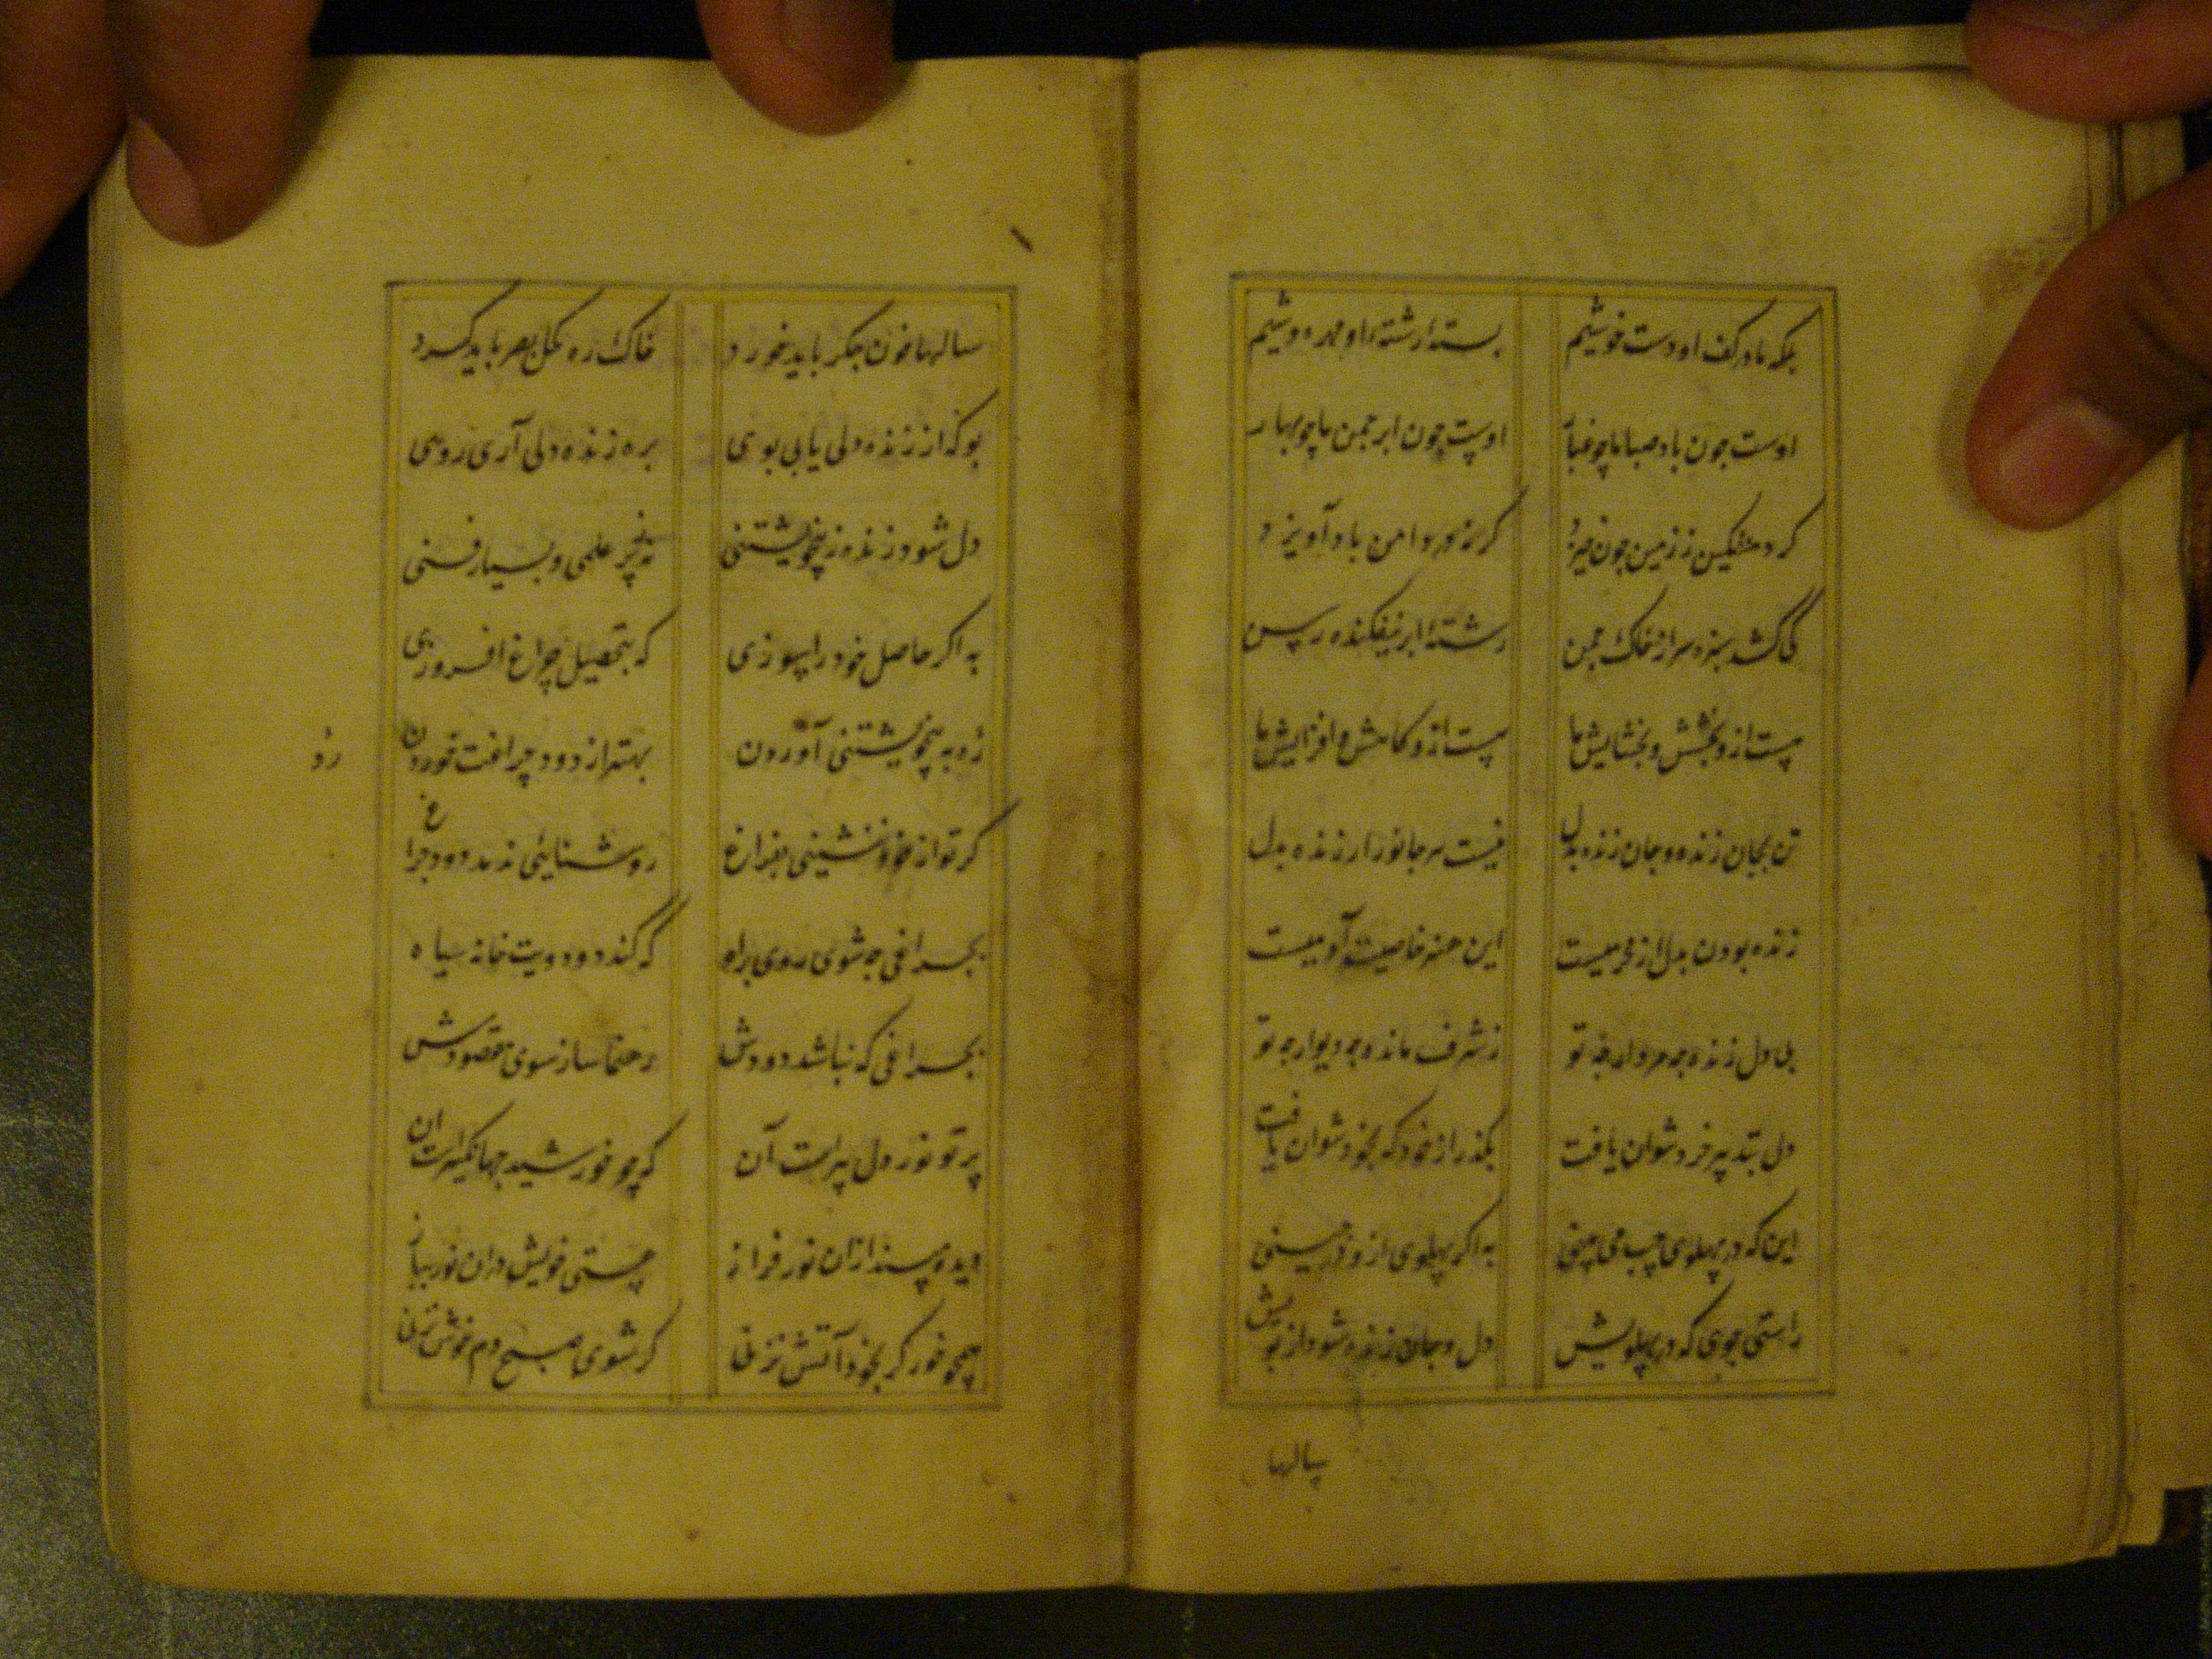 بلکه ما در کف او دست خوشیم بسته رشته او مهره وشیم
اوست چون باد صبا ما چو غبار اوست چون ابر چمن ما چو بهار
کرد مسکین ز زمین چون خیزد گر نه در دامن باد آویزد
کی کشد سبزه سر از خاک چمن رشته ابر نیفکنده رسن
هست از و بخشش و بخشایش ما هست از و کاهش و افزایش ما
تن بجان زنده و جان زنده بدل نیست هر جانور ار زنده بدل
زنده بودن بدل از محرمیست این هنر خاصیت آدمیست
بی دل زنده چه مردار چه تو ز شرف مانده چه دیوار چه تو
دل بتدبیر خرد نتوان یافت بگذر از خود که بخود نتوان یافت
این که در پهلوی چپ می بینی به اگر پهلوی از و در چینی
راستی جوی که در پهلویش دل و جان زنده شود از بویش
سالها
سالها خون جگر باید خورد خاک ره کحل بصر باید کرد
بو که از زنده دلی یابی بوی بره زنده دلی آری روی
دل شود زنده ز بیخویشتنی نه ز پر علمی و بسیار فنی
به اگر حاصل خود را سوزی که بتحصیل چراغ افروزی
رو به بیخویشتنی آوردن بهتر از دود چراغت خوردن
رو
گر تو از خود ننشینی بفراغ روشنایی ندهد دود چراغ
بچراغی چه شوی روی براه که کند دود ویت خانه سیاه
بچراغی که نباشد دودش رهنما ساز سوی مقصودش
پرتو نور دل پیر است آن که چو خورشید جهانگیر است آن
دیده مپسند از آن نور فراز هستی خویش در آن نور بباز
همچو خور گر بخود آتش نزنی گر شوی صبح دم خوش نزنی